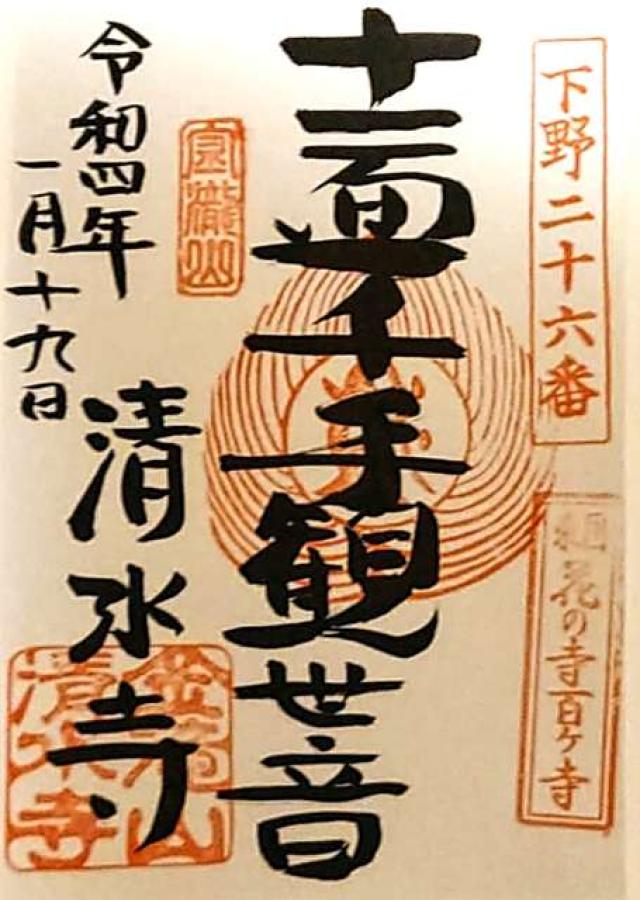 下野二十六番
花の寺百ヶ寺
十一面千手観世音
令和四年
一月十九日
清水寺
清水寺